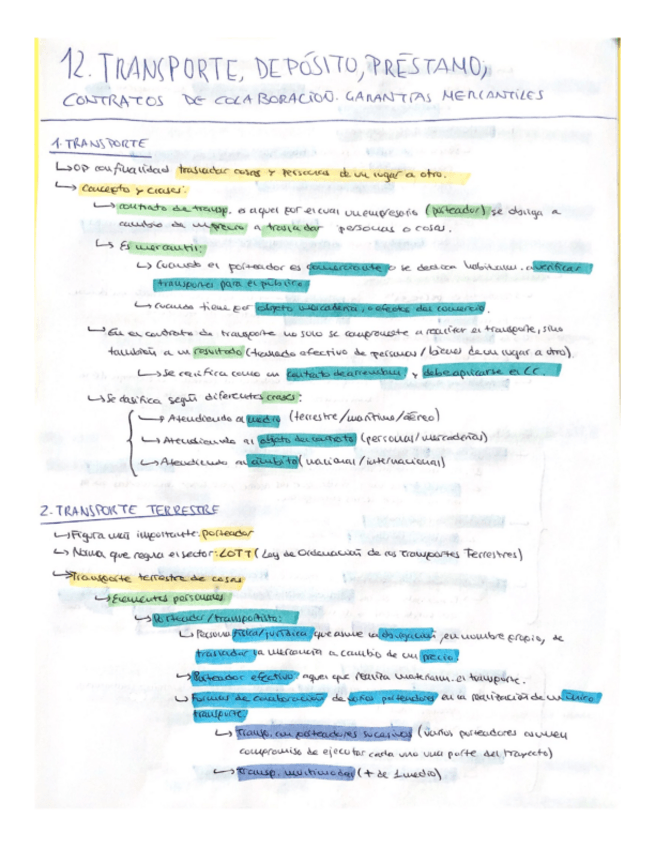 12. TRANSPORTE, DEPÓSITO, PRÉSTAMO,
CONTRATOS DE COLABORACIÓN. GARANTÍAS MERCANTILES
1. TRANSPORTE
↳ OP con finalidad trasladar cosas y personas de un lugar a otro.
↳ Concepto y clases:
↳ contrato de transp. es aquel por el cual un empresario (porteador) se obliga a
cambio de un precio a trasladar personas o cosas.
↳ Es mercantil:
↳ Cuando el porteador es comerciante o se dedica habitualm. a verificar
transportes para el público
↳ cuando tiene por objeto mercadería, o efectos del comercio.
↳ En el contrato de transporte no solo se compromete a realizar el transporte, sino
también a un resultado (traslado efectivo de personas / bienes de un lugar a otro)
↳ Se califica como un contrato de arrendam. y debe aplicarse el CC.
↳ Se clasifica según diferentes clases:
↳ Atendiendo al medio (terrestre/marítimo/aéreo)
↳ Atendiendo al objeto del contrato (personal/mercaderías)
↳ Atendiendo al ámbito (nacional/internacional)
2. TRANSPORTE TERRESTRE
↳ Figura más importante: porteador
↳ Norma que regula el sector: LOTT (Ley de Ordenación de los Transportes Terrestres)
↳ Transporte terrestre de cosas
↳ Elementos personales
↳ Porteador/transportista:
↳ Persona física/jurídica que asume la obligación, en nombre propio, de
trasladar la mercancía a cambio de un precio.
↳ Porteador efectivo: aquel que realiza materialm. el transporte.
↳ Formas de colaboración de varios porteadores en la realización de un único
transporte:
↳ Transp. con porteadores sucesivos (varios porteadores asumen
compromiso de ejecutar cada uno una parte del trayecto)
↳ Transp. multimodal (+ de 1 medio)